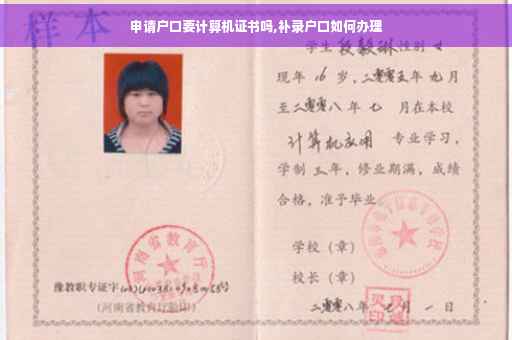 申请户口要计算机证书吗,补录户口如何办理
样本
学生段毅琳性别女
现年16岁，二零零五年九月
至二零零八年七 月在本校
计算机应用 专业学习，
学制三年，修业期满，成绩
合格，准予毕业
学校（章）
校长（章）
二零零八年七月一日
河南省教育厅
豫教职专证字
（河南省教育厅验印）